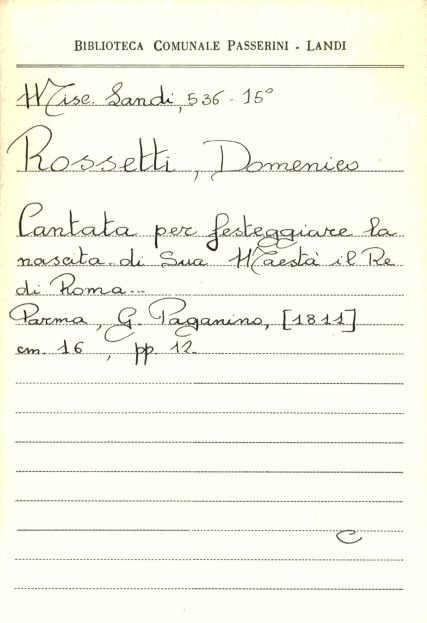 BIBLIOTECA COMUNALE PASSERINI - LANDI
Misc. Landi, 536 - 15°
Rossetti, Domenico
Cantata per festeggiare la
nascita di Sua Maestà il Re
di Roma...
Parma, G. Paganino, [1811]
cm. 16, pp. 12.
C